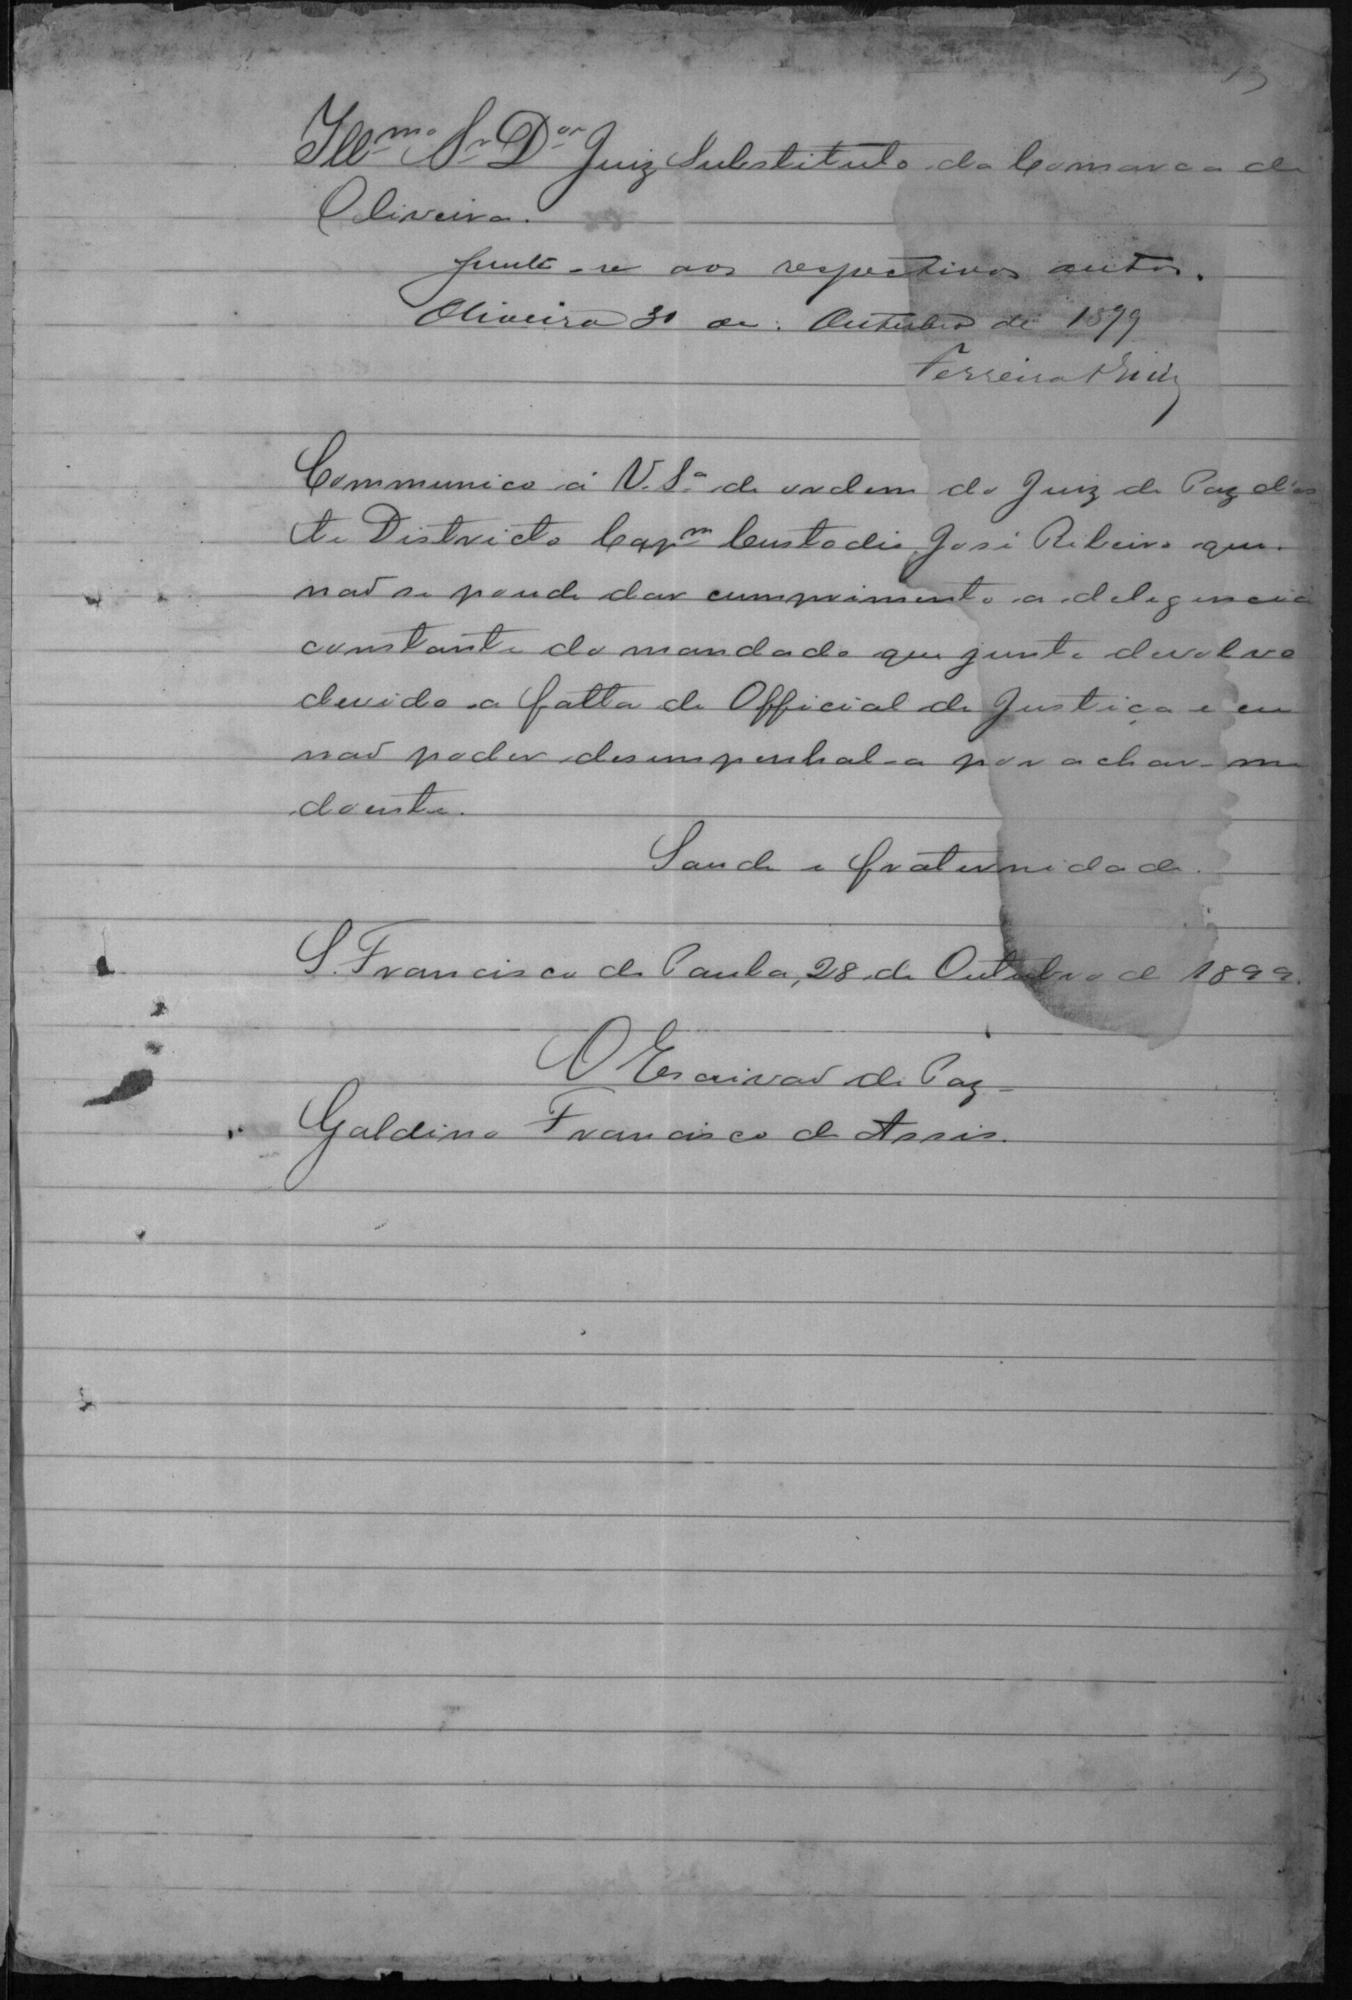 Illmo Sr Dor Juiz Substituto da Comarca de
Oliveira.
Junte-se aos respectivos autos.
Oliveira 30 de Outubro de 1899
Ferreira
Communico á V. Sa de ordem do Juiz de Paz d'es
te Districto Capm Custodio José Ribeiro que
naõ se poude dar cumprimento a delegencia
constante do mandado que junto devolvo
devido a falta de Official de Justiça e eu
naõ poder desempenhal-a por achar-me
doente.
Saude e fraternidade.
S. Francisco de Paula, 28 de Outubro de 1899.
O Escrivaõ de Paz
Galdino Francisco de Assis.